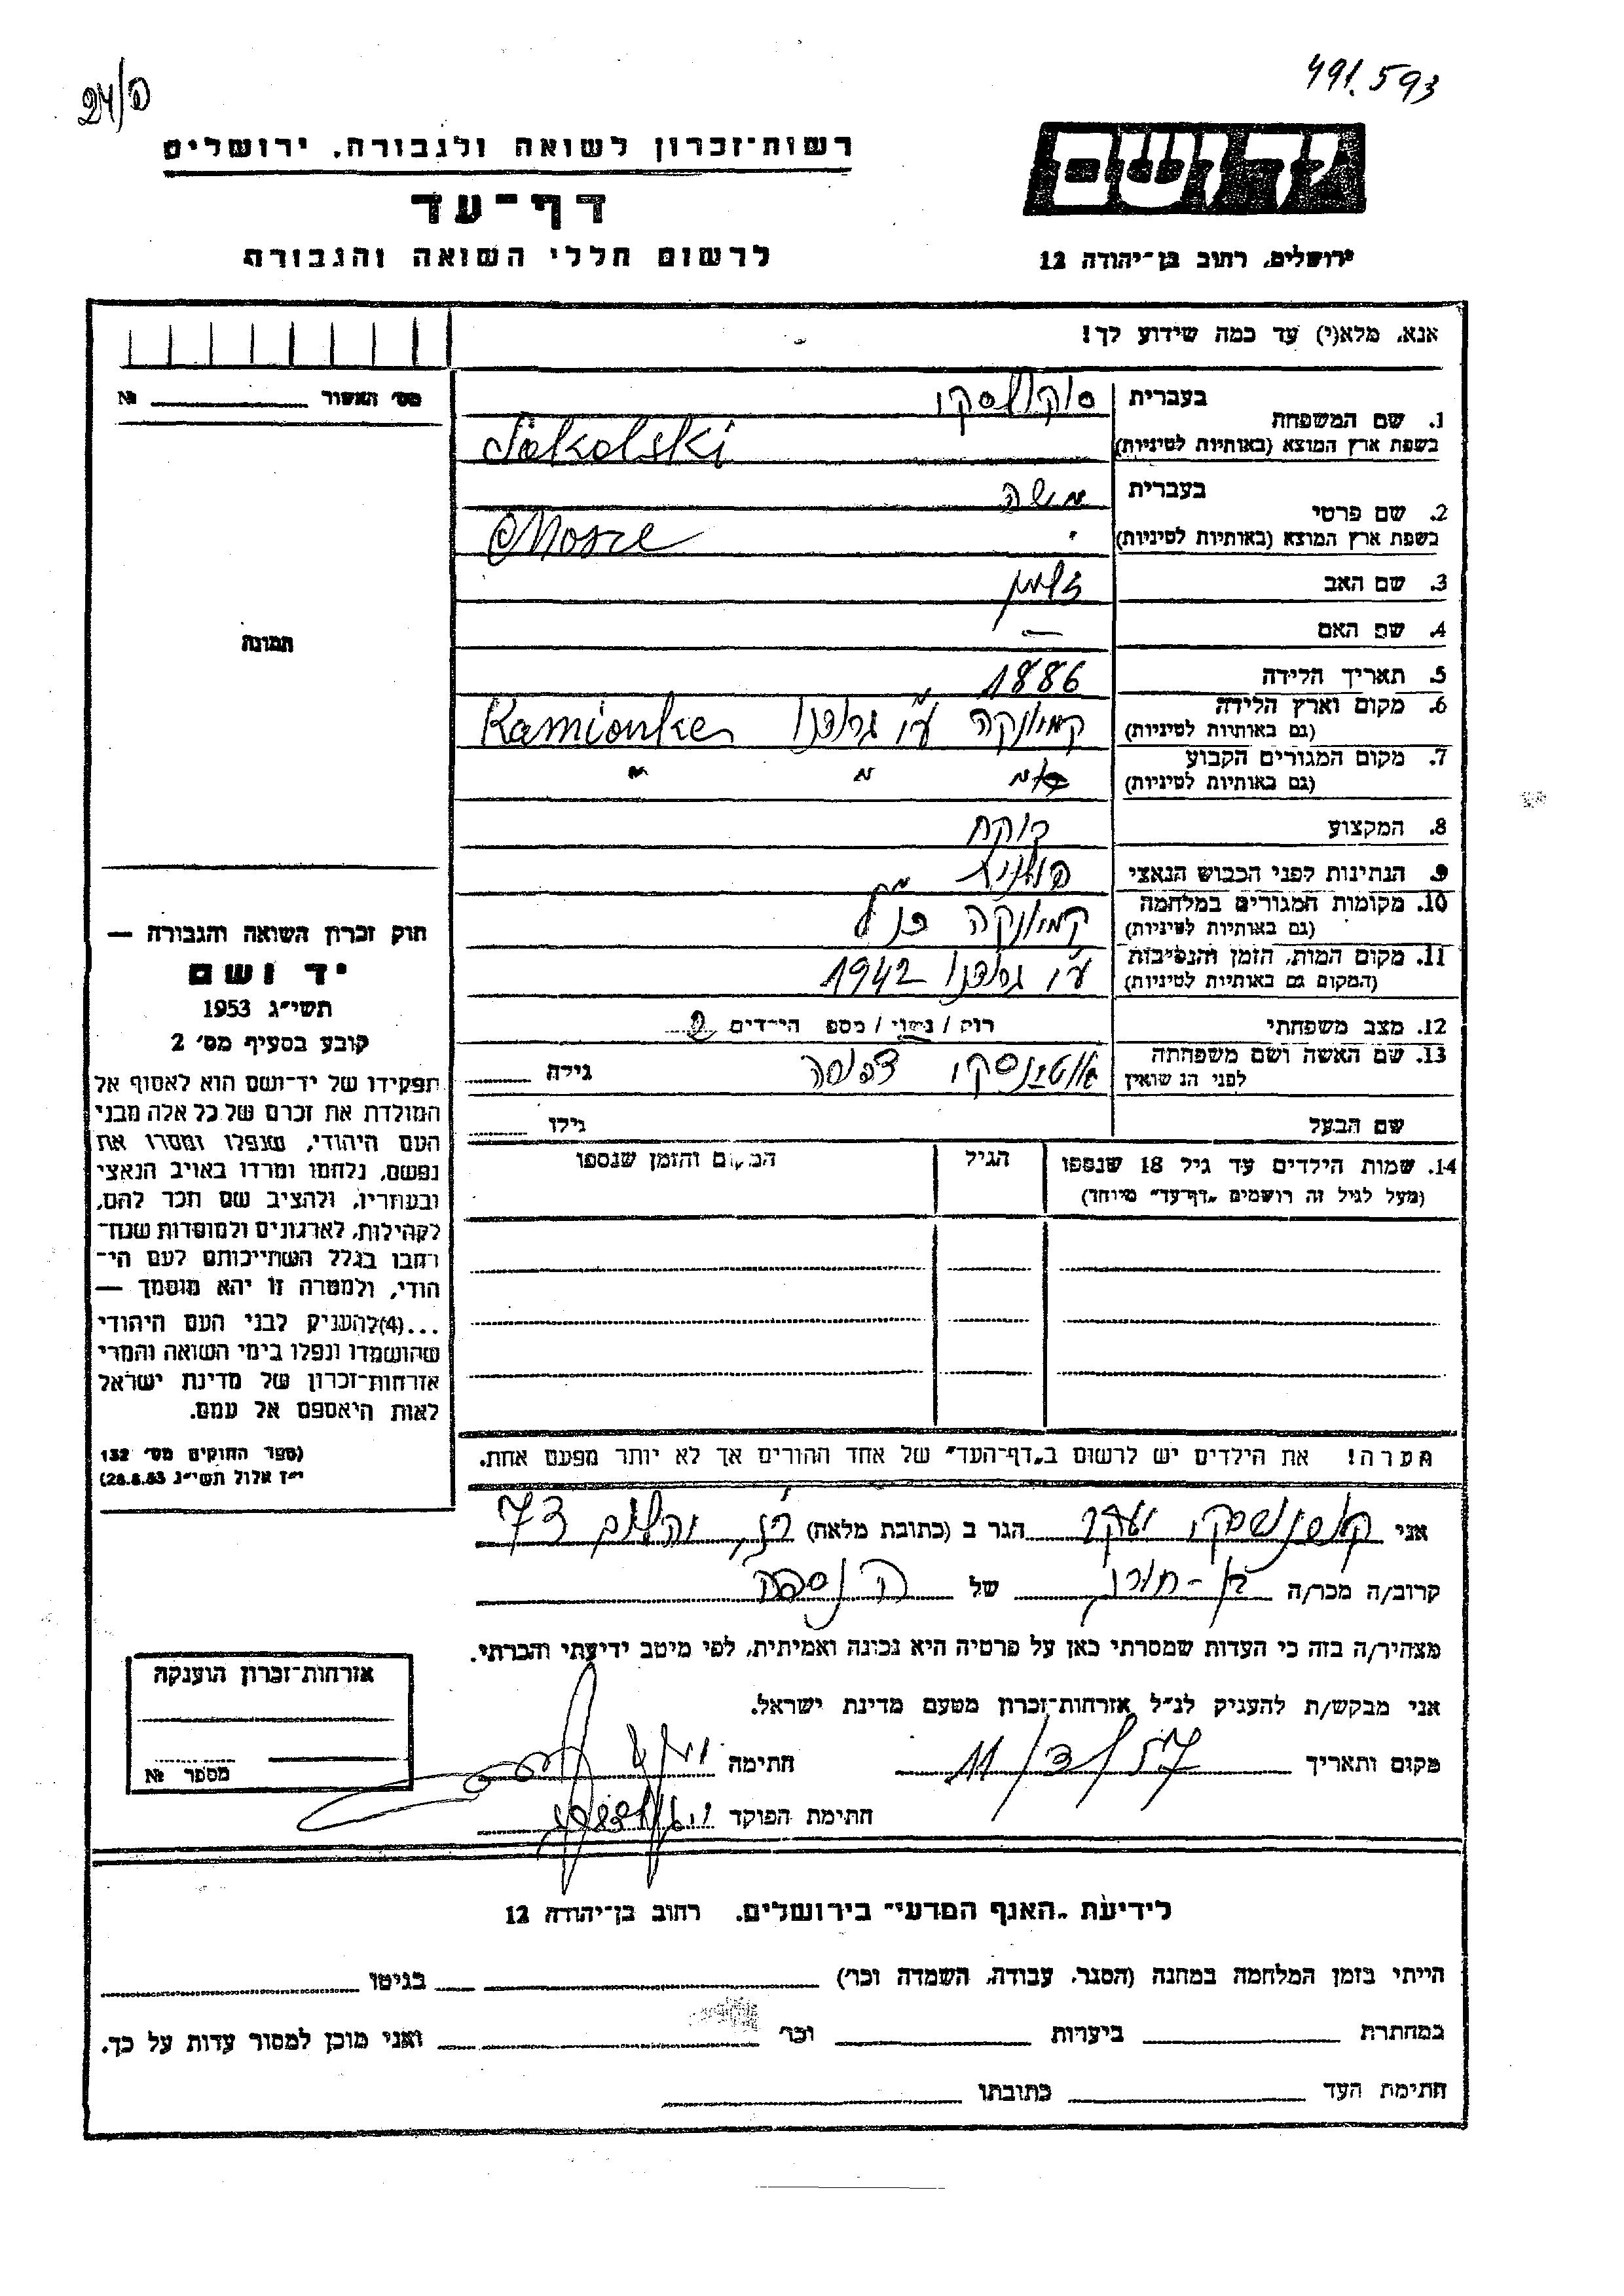 491.593
24/פ
יד ושם
ירושלים, רחוב בן-יהודה 12
רשות-זכרון לשואה ולגבורה, ירושלים
דף-עד
לרשום חללי השואה והגבורה
אנא, מלא(י) עד כמה שידוע לך!
מס' האשור № 
1. שם המשפחה בעברית סוקולסקי
בשפת ארץ המוצא (באותיות לטיניות) Sokolski
2. שם פרטי בעברית משה
בשפת ארץ המוצא (באותיות לטיניות) Mosze
3. שם האב זלמן
4. שם האם —
5. תאריך הלידה 1886
6. מקום וארץ הלידה (גם באותיות לטיניות) קמיונקה ע"י גרודנו Kamionke
7. מקום המגורים הקבוע (גם באותיות לטיניות) " "
8. המקצוע רוקח
9. הנתינות לפני הכבוש הנאצי פולנית
10. מקומות המגורים במלחמה (גם באותיות לטיניות) קמיונקה כנ"ל
11. מקום המות, הזמן והנסיבות (המקום גם באותיות לטיניות) ע"י גרודנו 1942
12. מצב משפחתי רווק / נשוי / מספר הילדים 2
13. שם האשה ושם משפחתה לפני הנשואין גילה
שם הבעל גילו
14. שמות הילדים עד גיל 18 שנספו הגיל המקום והזמן שנספו
(מעל לגיל זה רושמים "דף-עד" מיוחד)
הערה! את הילדים יש לרשום ב"דף-העד" של אחד ההורים אך לא יותר מפעם אחת.
תמונה
חוק זכרון השואה והגבורה —
יד ושם
תשי"ג 1953
קובע בסעיף מס' 2
תפקידו של יד-ושם הוא לאסוף אל
המולדת את זכרם של כל אלה מבני
העם היהודי, שנפלו ומסרו את
נפשם, נלחמו ומרדו באויב הנאצי
ובעוזריו, ולהציב שם וזכר להם,
לקהילות, לארגונים ולמוסדות שנח-
רבו בגלל השתייכותם לעם הי-
הודי, ולמטרה זו יהא מוסמך —
...(4)להעניק לבני העם היהודי
שהושמדו ונפלו בימי השואה והמרי
אזרחות-זכרון של מדינת ישראל
לאות היאספם אל עמם.
(ספר החוקים מס' 132
י"ז אלול תשי"ג 28.8.53)
אני יעקב הגר ב (כתובת מלאה) 73
קרוב/ה מכר/ה בן-דוד של הנספה
מצהיר/ה בזה כי העדות שמסרתי כאן על פרטיה היא נכונה ואמיתית, לפי מיטב ידיעתי והכרתי.
אני מבקש/ת להעניק לנ"ל אזרחות-זכרון מטעם מדינת ישראל.
מקום ותאריך 11/3/57 חתימה
חתימת הפוקד
אזרחות-זכרון הוענקה
מספר №
לידיעת "האגף המדעי" בירושלים, רחוב בן-יהודה 12
הייתי בזמן המלחמה במחנה (הסגר, עבודה, השמדה וכו') בגיטו
במחתרת ביערות וכו' ואני מוכן למסור עדות על כך.
חתימת העד כתובתו